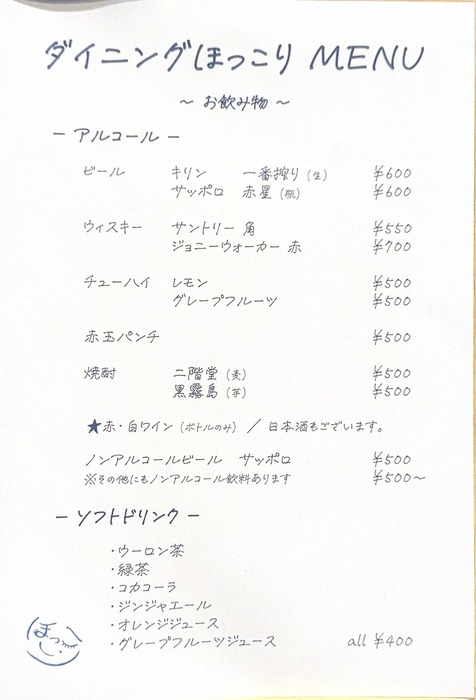 ダイニングほっこり MENU
～ お飲み物 ～
－ アルコール －
ビール キリン 一番搾り（生） ¥600
サッポロ 赤星（瓶） ¥600
ウィスキー サントリー 角 ¥550
ジョニーウォーカー 赤 ¥700
チューハイ レモン ¥500
グレープフルーツ ¥500
赤玉パンチ ¥500
焼酎 二階堂（麦） ¥500
黒霧島（芋） ¥500
★赤・白ワイン（ボトルのみ） ／ 日本酒もございます。
ノンアルコールビール サッポロ ¥500
※その他にもノンアルコール飲料あります ¥500～
－ ソフトドリンク －
・ウーロン茶
・緑茶
・コカコーラ
・ジンジャエール
・オレンジジュース
・グレープフルーツジュース all ¥400
ほっこり